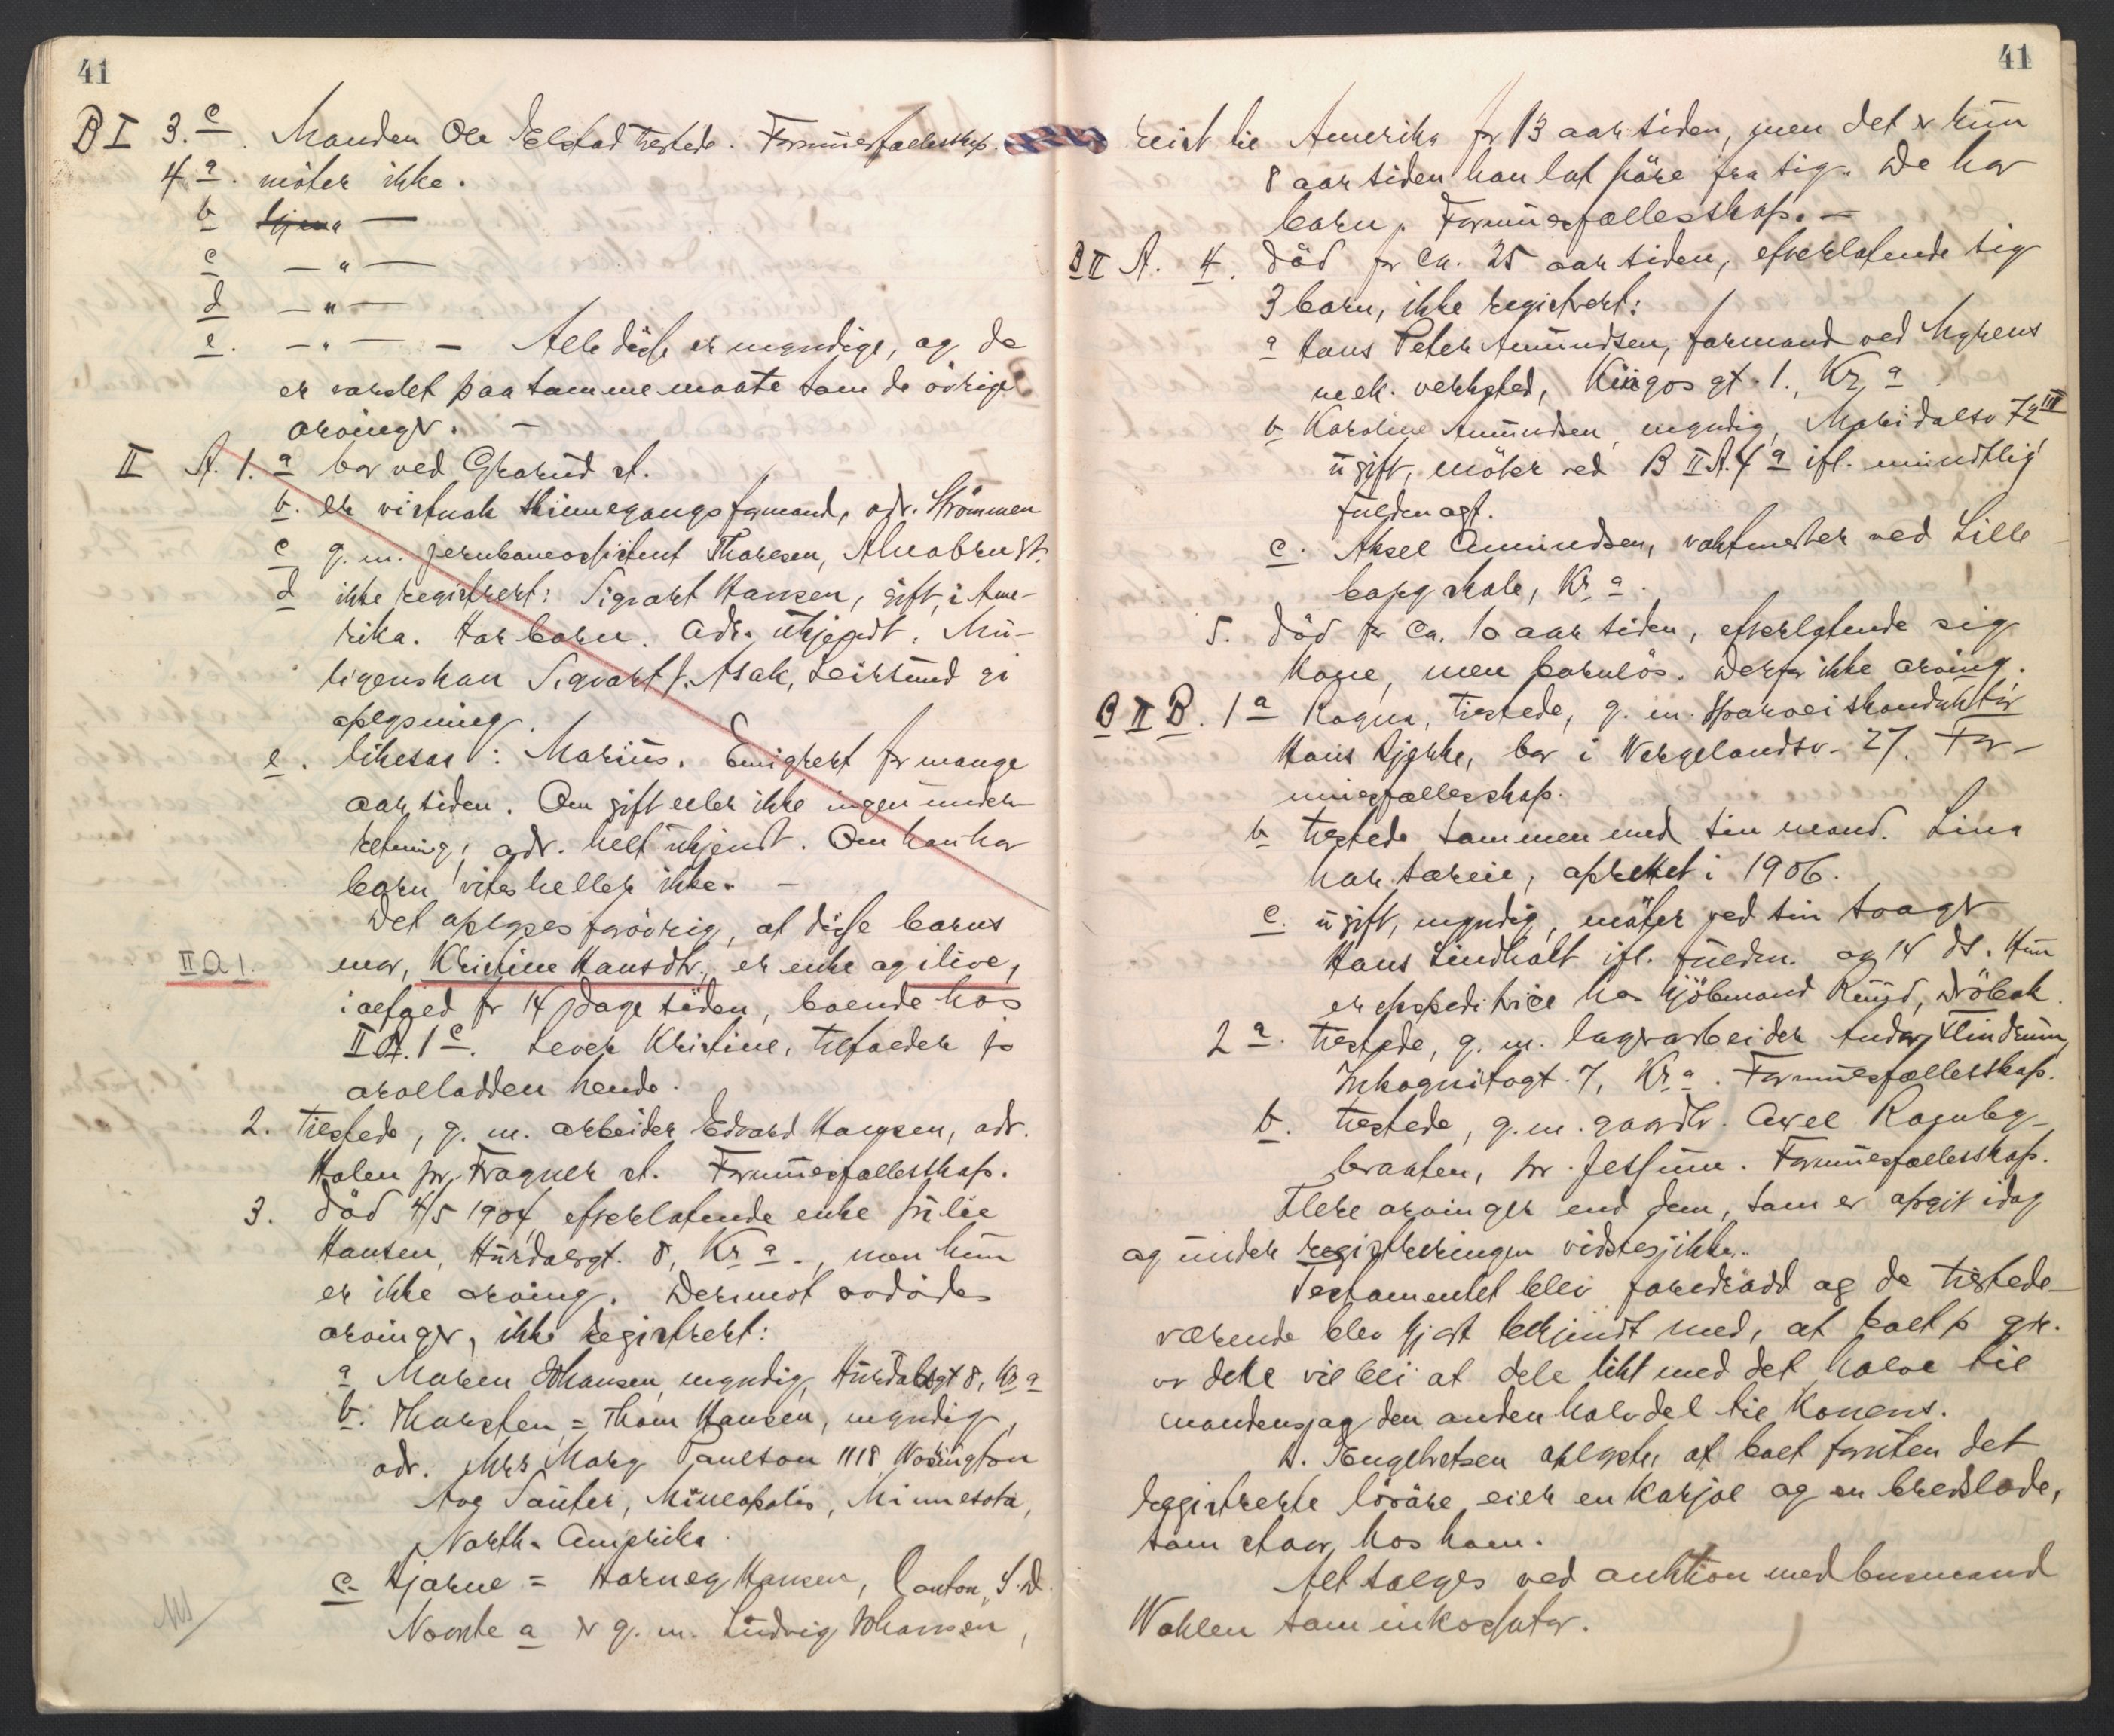 41
B I 3. c. Manden Ole Elstad tilstede. Formuesfællesskap.
4 a. møter ikke.
b —"—
c —"—
d —"—
e. —"— — Alle disse er myndige, og de
er varslet paa samme maate som de øvrige
arvinger. —
II A. 1. a bor ved Grorud st.
b. er virtuah skinnegangsformand, adr. Strømmen
c g. m. jernbaneassistent Thoresen, Alnabru st.
d ikke registrert: Sigvart Hansen, gift, i Ame-
rika. Har barn. Adr. ukjendt. Mu-
ligens kan Sigvart J. Asak, Leirsund gi
oplysning.
e. likesaa: Marius. Emigrert for mange
aar siden. Om gift eller ikke ingen under-
retning, adr. helt ukjendt. Om han har
barn vites heller ikke. —
Det oplyses forøvrig, at disse barns
II A 1. mor, Kristine Hansdtr., er enke og ilive,
ialfald for 14 dage siden, boende hos
II A. 1 c. Lever Kristine, tilfalder jo
arvelodden hende.
2. Tilstede, g. m. arbeider Edvard Hansen, adr.
Holen pr. Frogner st. Formuesfællesskap.
3. Död 4/5 1904, efterlatende enke Julie
Hansen, Hurdalsgt. 8, Kr a., men hun
er ikke arving. Derimot avdødes
arvinger, ikke registrert:
a Maren Johansen, myndig, Hurdalsgt 8, Kr a
b. Thorsten = Thom Hansen, myndig,
adr. Mrs Mary Paulson 1118 Wosington
Ave Sauter, Mineapolis, Minnesota,
North-Amerika.
c. Hjarne = Harney Hansen, Canton, S. D.
Nævnte a er g. m. Ludvig Johansen,
41
reist til Amerika for 13 aar siden, men det er kun
8 aar siden han lot høre fra sig. De har
barn. Formuesfællesskap. —
B II A. 4. Död for ca. 25 aar siden, efterlatende sig
3 barn, ikke registrert:
a Hans Peter Amundsen, formand ved Myrens
mek. verksted, Kingos gt. 1., Kr. a
b Karoline Amundsen, myndig, Maridalsv 79 III
ugift, møter ved B II A. 4 a ifl. mundtlig
fuldmagt.
c. Aksel Amundsen, vaktmester ved Lille
borg skole, Kr. a.
5. Död for ca. 10 aar siden, efterlatende sig
kone, men barnløs. Derfor ikke arving.
B II B. 1 a Ragna, tilstede, g. m. sporveiskonduktør
Hans Bjerke, bor i Wergelandsv. 27. For-
muesfællesskap.
b tilstede sammen med sin mand. Lina
har særeie, oprettet i 1906.
c. ugift, myndig, møter ved sin svoger
Hans Lindholt ifl. fuldm. av 14 ds. Hun
er ekspeditrice hos kjøbmand Ruud, Drøbak.
2 a. tilstede, g. m. lagerarbeider Anders Flindrum,
Inkognitogt. 7, Kr. a. Formuesfællesskap.
b. tilstede, g. m. gaardbr. Axel Romleg-
braaten, pr. Jessum. Formuesfællesskap.
Flere arvinger end dem, som er opgit idag
og under registreringen vidstes ikke.
Testamentet blev foredradd og de tilstede-
værende blev gjort bekjendt med, at boet p. gr.
av dette vil bli at dele likt med det halve til
mandens og den anden halvdel til konens.
A. Engebretsen oplyste, at boet foruten det
registrerte løsøre eier en karjol og en bredslæde,
som staar hos ham.
Alt sælges ved auktion med bus­mand
Wahlen som inkassator.